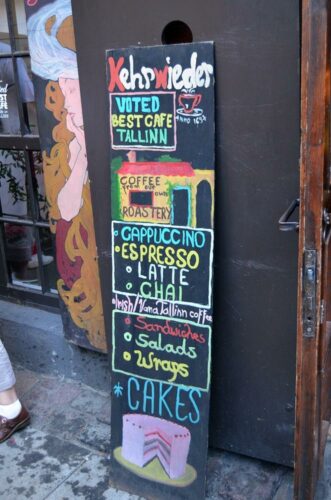 Kehrwieder
VOTED
BEST CAFE
TALLINN
ANNO 1634
COFFEE
from our own
ROASTERY
CAPPUCCINO
ESPRESSO
LATTE
CHAI
Irish/Vana Tallinn coffee
Sandwiches
Salads
Wraps
CAKES